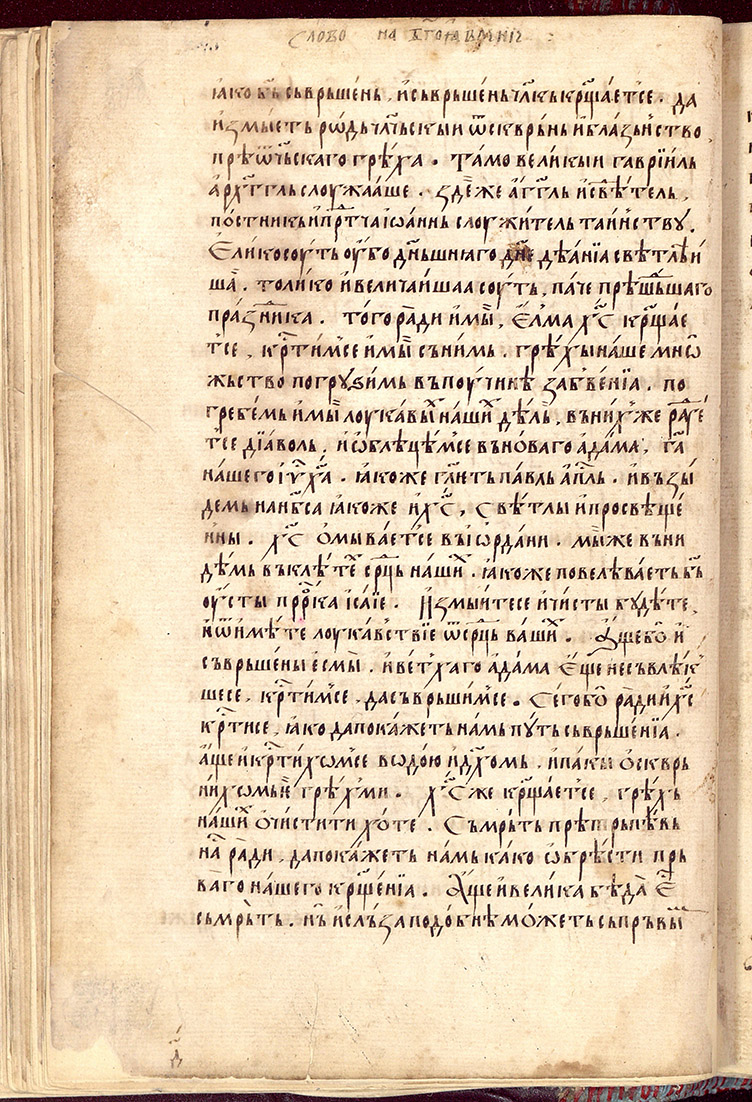 слово на б҃гоявлѥнїе :
ꙗко бь҃ сьврьше́нь, и҆сьврьше́ньчл҃кькр҃ща́ет҆се. да
и҆змы́еть рѡ́дьчл҃чьскыи ѿскврь́ны и҆бла́зньство
прѣѡч҃ьскаго грѣ́ха. та́мо вели́кыи гаврїи́ль
а҆рхг҃гль слоужа́аше. зде́же а҆г҃гль и҆свѣ́тель,
по́стникьи҆прⷣтча і҆ѡа́ннь слоужи́тель таи́нству.
Е҆ли́косоуть оу҆́бо дн҃ьшнꙗго дн҃е дѣа́нїа свѣ́тлѣи
ша. толи́ко и҆велича́ишаа соуть, па́че прѣⷤшьшаго
пра́зⷣника. того́ра́ди и҆мы̀, Е҆́лма х҃с кр҃ща́е
т҆се, крⷭ҇ти́м҆се и҆мы̀ сьни́мь. грѣ́хы на́ше мнѡ
жьство погроузи́мь вьпоучи́нѣ забве́нїа. по
гребе́мь и҆мы̀ лоука́выⷯ на́шиⷯ дѣ́ль, вьни́х҆же ра́дꙋе
т҆се дїа́воль, и҆ѡ҆блѣце́м҆се вьно́ваго а҆да́ма, г҃а
на́шего і҆у҃ х҃а. ꙗ҆ко́же гл҃еть па́вль а҆пⷭ҇ль. и҆вьзы́
демь нан҃бса ꙗ҆ко́же и҆х҃с, свѣ́тлы и҆просвѣще́
нны. х҃с о҆мыва́ет҆се вьі҆ѡрда́ни. мы́же вьни
дѣ́мь вьклѣ́теⷯ срⷣць на́шиⷯ. ꙗ҆ко́же повелѣва́еть бь҃
оу҆сты прⷪ҇рка і҆са́їе. И҆змы́итесе и҆чи́сты бу́дѣте,
и҆ѿимѣ́те лоука́вьствїе ѿсрⷣць ва́шиⷯ. А҆́щебо и҆
сьврьше́ны е҆смы̀. и҆ве́тхаго а҆да́ма е҆́ще несьвлѣ́к
шесе, крⷭ҇ти́м҆се, дасьврьши́м҆се. Сего́бо ра́дии҆х҃с
крⷭ҇ти́се, ꙗ҆ко дапока́жеть на́мь пу́ть сьврьше́нїа.
а҆́ще и҆крⷭ҇ти́хѡм҆се во́дою и҆дх҃омь. и҆па́кы ѡ҆скврь
ни́хѡмь е҆ грѣ́х҆ми. х҃с же кр҃ща́ет҆се, грѣ́хь
на́шиⷯ ѡ҆чи́стити хо́те. Сьмрьть прѣтрьпѣ́вь
наⷭ ра́ди, дапока́жеть на́мь ка́ко ѡ҆брѣ́сти прь
ва́го на́шего кр҃ще́нїа. А҆́ще и҆вели́ка бѣда̀ е҆ⷭ
сьмрьть. нь и҆сльза подо́бнѣ мо́жеть сьпрьвыⷨ